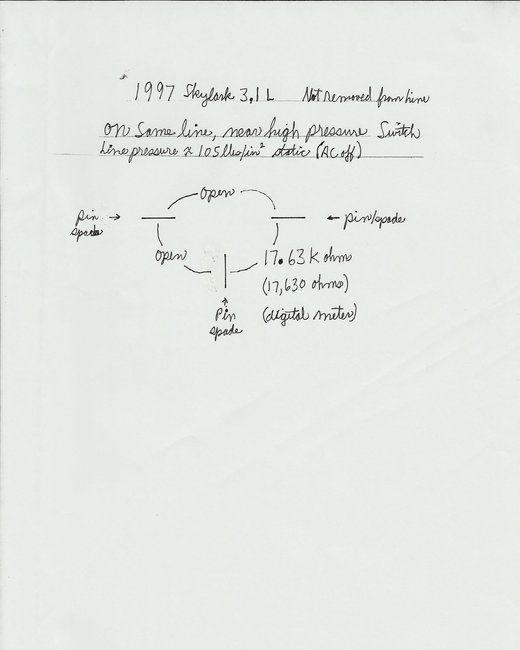 1997 Skylark 3.1 L Not removed from line
on same line, near high pressure switch
Line pressure ≈ 105 lbs/in² static (AC off)
open
pin → ← pin/spade
spade
open 17.63 K ohms
(17,630 ohms)
↑
Pin (digital meter)
spade